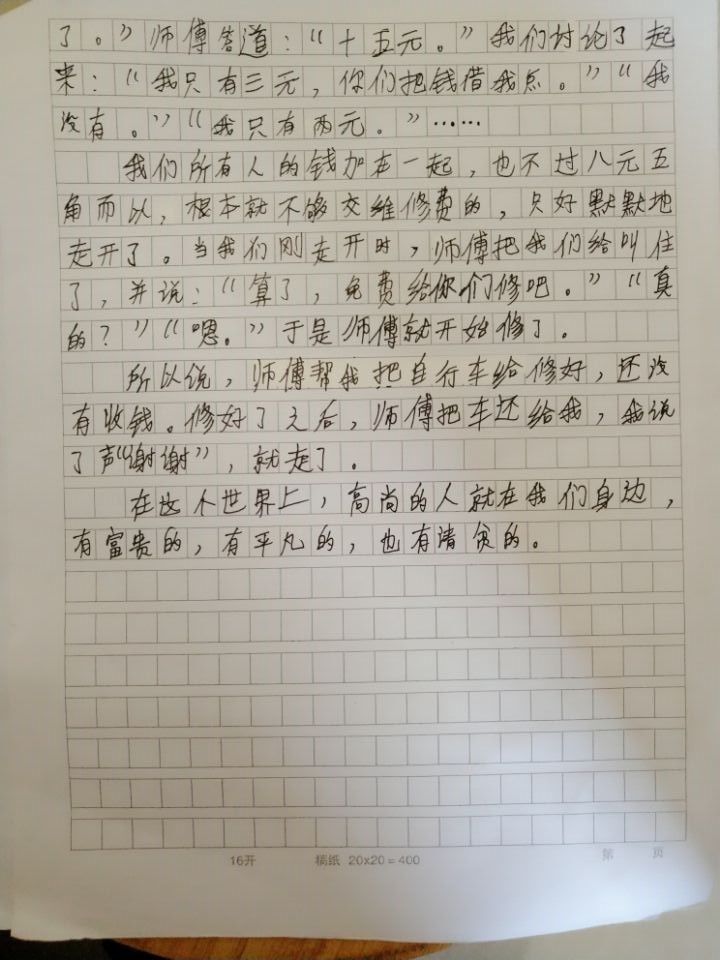 了。”师傅答道：“十五元。”我们讨论了起
来：“我只有三元，你们把钱借我点。”“我
没有。”“我只有两元。”……
我们所有人的钱加在一起，也不过八元五
角而以，根本就不够交维修费的，只好默默地
走开了。当我们刚走开时，师傅把我们给叫住
了，并说：“算了，免费给你们修吧。”“真
的？”“嗯。”于是师傅就开始修了。
所以说，师傅帮我把自行车给修好，还没
有收钱。修好了之后，师傅把车还给我，我说
了声“谢谢”，就走了。
在这个世界上，高尚的人就在我们身边，
有富贵的，有平凡的，也有清贫的。
16开 稿纸 20x20=400 第 页